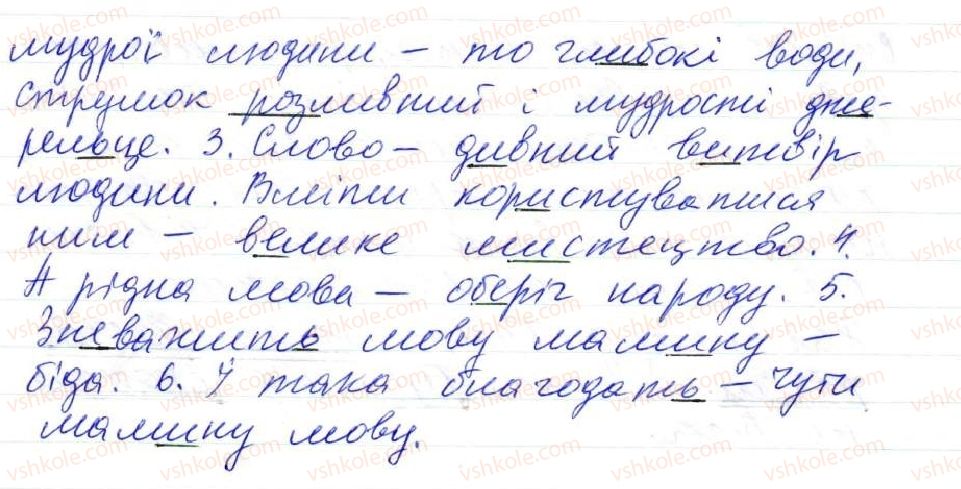 мудрої людини – то глибокі води,
струмок розливший і мудрості дже-
рельце. 3. Слово – дивний витвір
людини. Вміти користуватися
ним – велике мистецтво. 4.
А рідна мова – оберіг народу. 5.
Зневажить мову мамину –
біда. 6. І така благодать – чути
мамину мову.